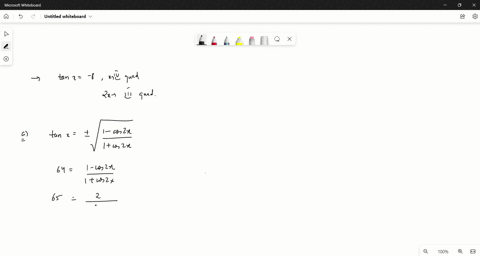 Microsoft Whiteboard
Untitled whiteboard
→ tan x = -8 , x→ II quad
2x→ III quad.
a) tan x = ± √(1 - cos2x / 1 + cos2x)
64 = 1 - cos2x / 1 + cos2x
65 = 2 /
100%